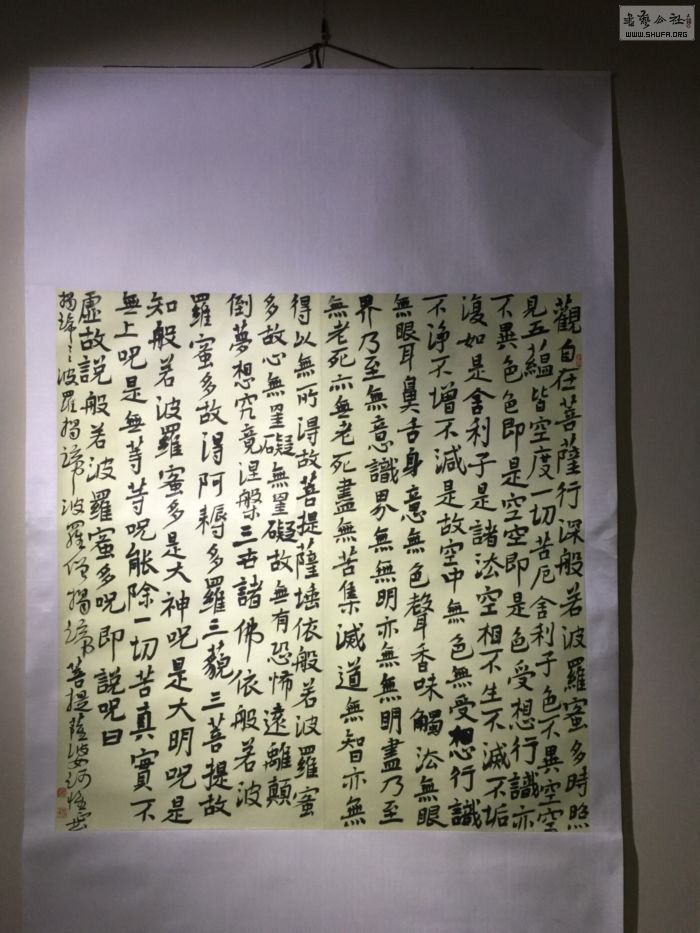 觀自在菩薩行深般若波羅蜜多時照
見五蘊皆空度一切苦厄舍利子色不異空空
不異色色即是空空即是色受想行識亦
復如是舍利子是諸法空相不生不滅不垢
不淨不增不減是故空中無色無受想行識
無眼耳鼻舌身意無色聲香味觸法無眼
界乃至無意識界無無明亦無無明盡乃至
無老死亦無老死盡無苦集滅道無智亦無
得以無所得故菩提薩埵依般若波羅蜜
多故心無罣礙無罣礙故無有恐怖遠離顛
倒夢想究竟涅槃三世諸佛依般若波
羅蜜多故得阿耨多羅三藐三菩提故
知般若波羅蜜多是大神咒是大明咒是
無上咒是無等等咒能除一切苦真實不
虛故說般若波羅蜜多咒即說咒曰
揭諦々々波羅揭諦波羅僧揭諦菩提薩婆訶
書艺公社
WWW.SHUFA.ORG